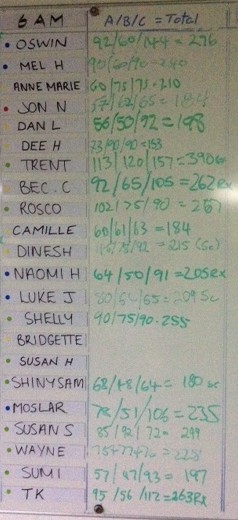 6 AM A/B/C = Total
OSWIN 92/60/144 = 296
MEL H 90/60/90 = 240
ANNE MARIE 60/75/75 = 210
JON N 184
DAN L 56/50/92 = 198
DEE H 73/90/90 = 153
TRENT 113/120/157 = 390
BEC. C 92/65/105 = 262 RX
ROSCO 102/75/90 = 267
CAMILLE 60/61/63 = 184
DINESH = 215 (Sc)
NAOMI H 64/50/91 = 205 RX
LUKE J 80/64/65 = 209 Sc
SHELLY 90/75/90 = 255
BRIDGETTE
SUSAN H
SHINY SAM 68/48/64 = 180 sc
MOSLAR 78/51/106 = 235
SUSAN S 85/92/72 = 249
WAYNE = 228
SUMI 57/47/93 = 197
TK 95/56/112 = 263 RX